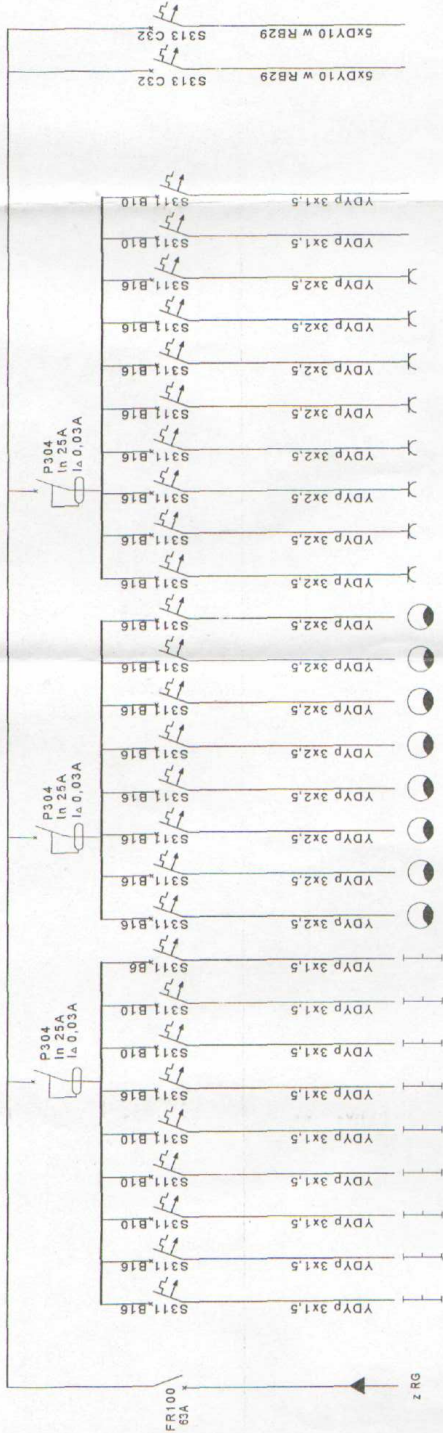 S313 C32
5xDY10 w RB29
S313 C32
5xDY10 w RB29
P304
In 25A
I△ 0,03A
S311 B10
YDYp 3x1,5
S311 B10
YDYp 3x1,5
S311 B16
YDYp 3x2,5
S311 B16
YDYp 3x2,5
S311 B16
YDYp 3x2,5
S311 B16
YDYp 3x2,5
S311 B16
YDYp 3x2,5
S311 B16
YDYp 3x2,5
S311 B16
YDYp 3x2,5
S311 B16
YDYp 3x2,5
P304
In 25A
I△ 0,03A
S311 B16
YDYp 3x2,5
S311 B16
YDYp 3x2,5
S311 B16
YDYp 3x2,5
S311 B16
YDYp 3x2,5
S311 B16
YDYp 3x2,5
S311 B16
YDYp 3x2,5
S311 B16
YDYp 3x2,5
S311 B16
YDYp 3x2,5
P304
In 25A
I△ 0,03A
S311 B6
YDYp 3x1,5
S311 B10
YDYp 3x1,5
S311 B10
YDYp 3x1,5
S311 B16
YDYp 3x1,5
S311 B10
YDYp 3x1,5
S311 B10
YDYp 3x1,5
S311 B10
YDYp 3x1,5
S311 B16
YDYp 3x1,5
S311 B16
YDYp 3x1,5
FR100
63A
z RG